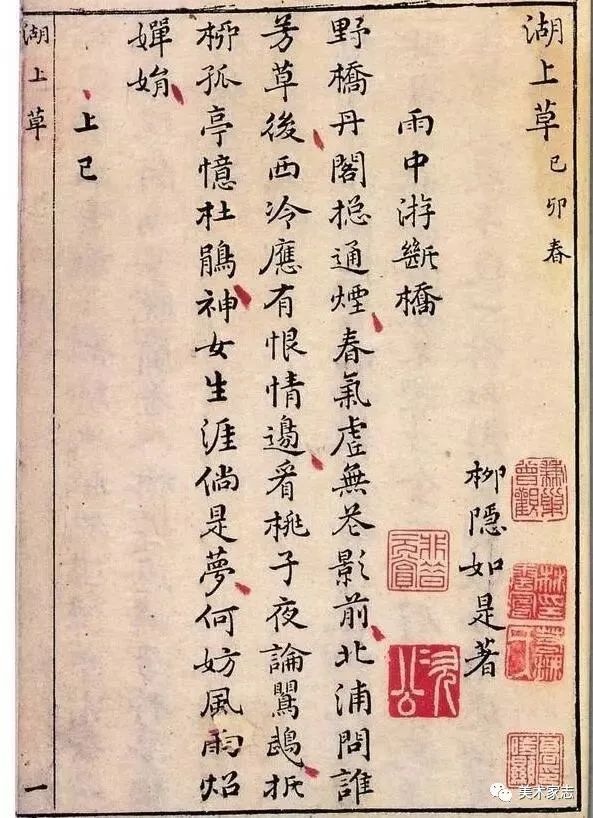 湖上草 己卯春
柳隱如是著
雨中游斷橋
野橋丹閣捴通煙春氣虛無花影前北浦問誰
芳草後西冷應有恨情邊看桃子夜論鸎鵡折
栁孤亭憶杜鵑神女生涯倘是夢何妨風雨炤
嬋娟
上巳
湖上草 一
美术家志